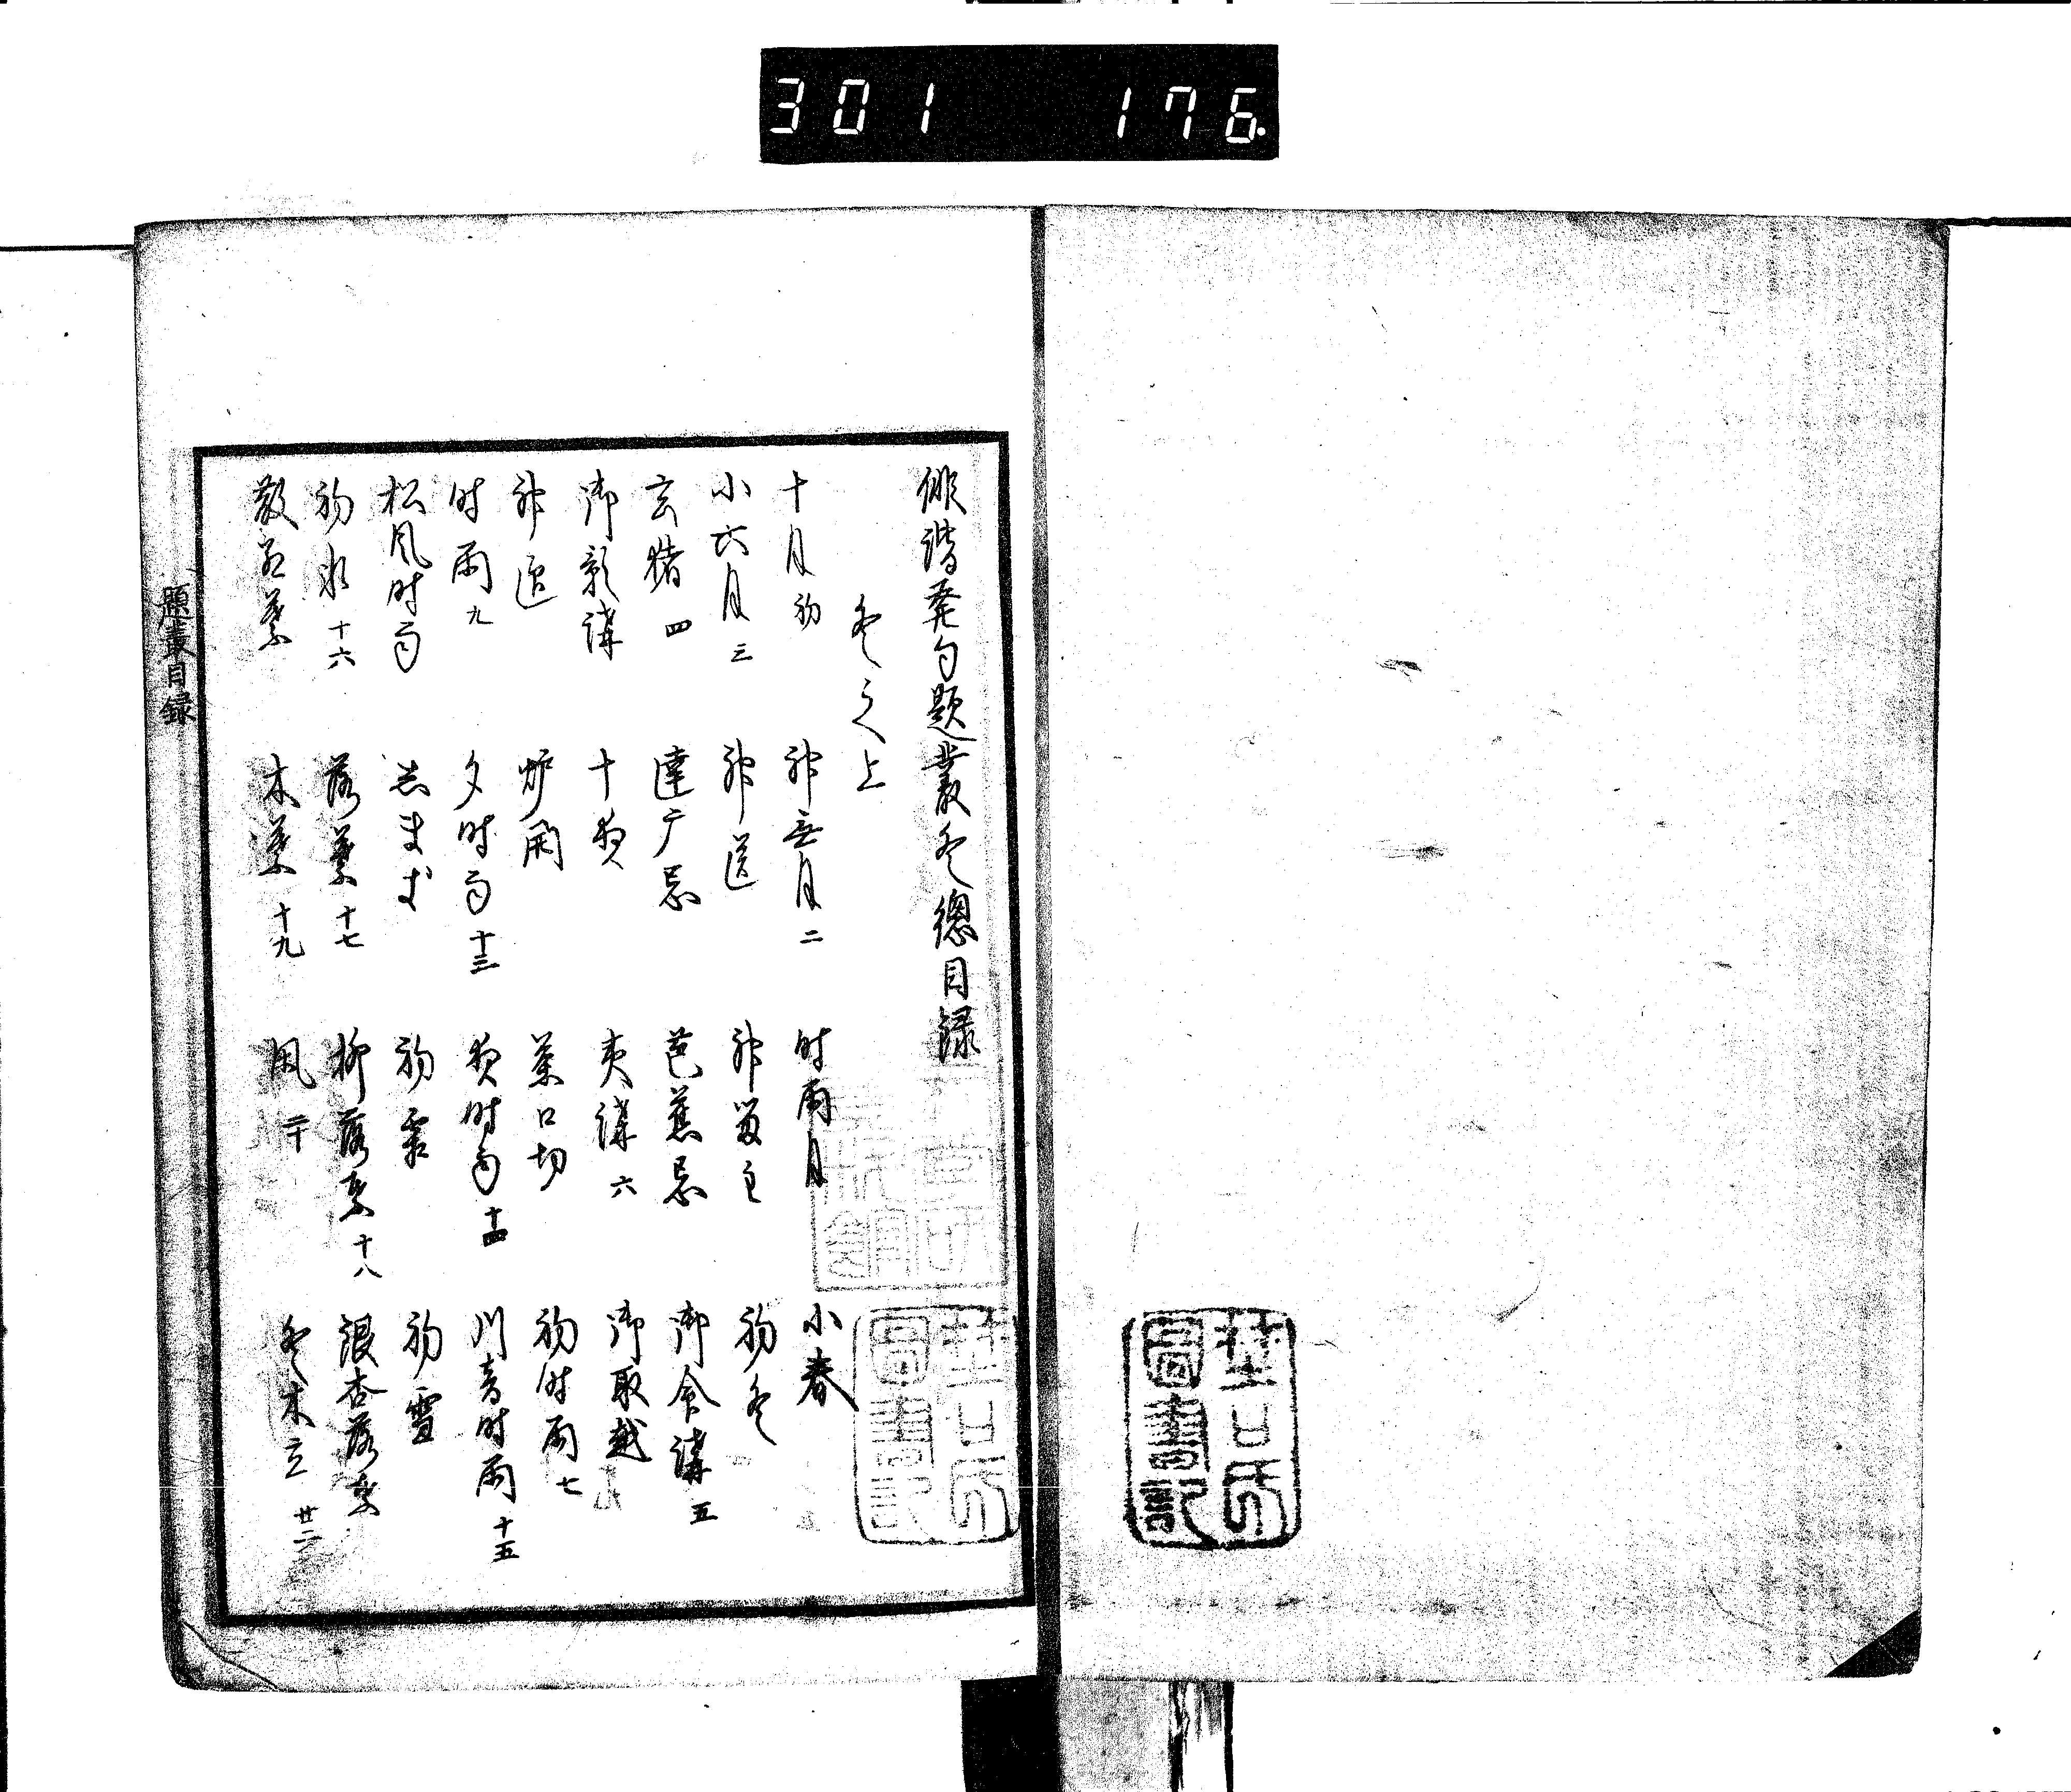 301 176.
俳諧発句題叢冬總目録
冬之上
十月初 神無月二 時雨月 小春
小六月三 神送 神留主 初冬
玄猪四 達广忌 芭蕉忌 御命講五
御影講 十夜 夷講六 御取越
神迎 炉開 茶口切 初時雨七
時雨九 夕時雨十三 夜時雨十四 川音時雨十五
松風時雨 初霜 初雪
初氷十六 落葉十七 柳落葉十八 銀杏落葉
散紅葉 木葉十九 凩二十 冬木立廿二
題叢目録
圖書記